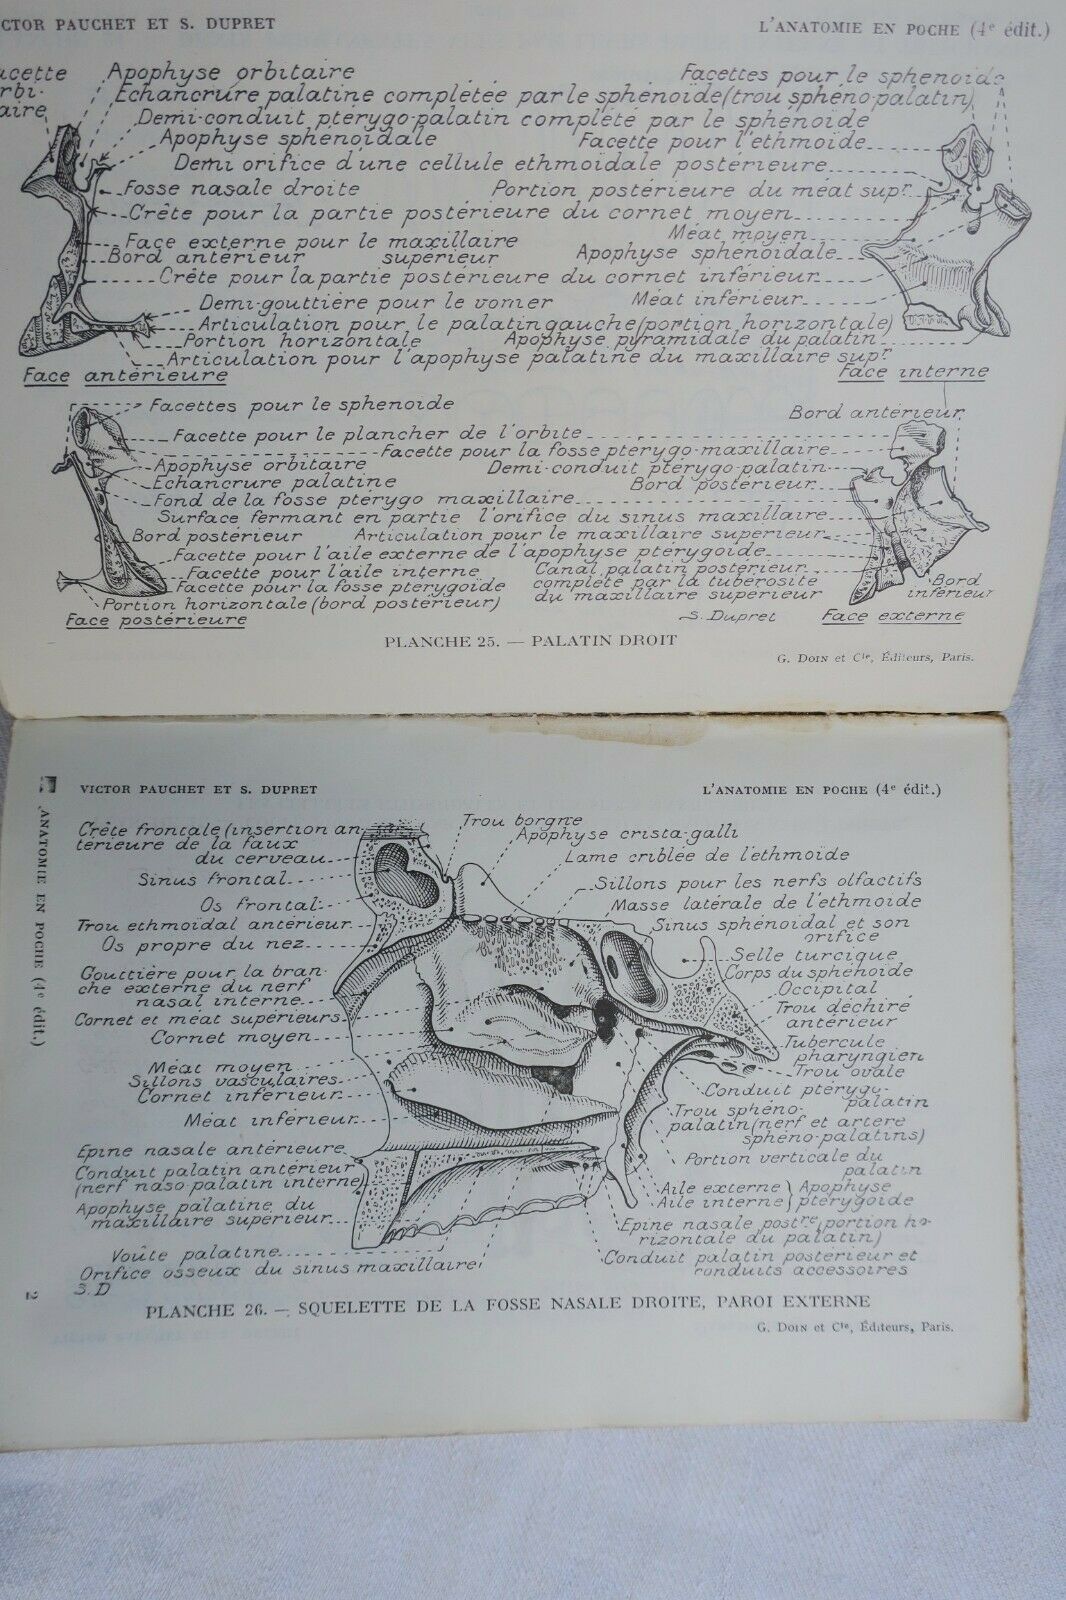 CTOR PAUCHET ET S. DUPRET
L'ANATOMIE EN POCHE (4e édit.)
Apophyse orbitaire
Facettes pour le sphenoïde
Echancrure palatine complétée par le sphénoïde (trou sphéno-palatin)
Demi-conduit ptérygo-palatin complété par le sphénoïde
Apophyse sphénoïdale
Facette pour l'ethmoïde
Demi orifice d'une cellule ethmoïdale postérieure
Fosse nasale droite
Portion postérieure du méat supr
Crête pour la partie postérieure du cornet moyen
Méat moyen
Face externe pour le maxillaire supérieur
Apophyse sphénoïdale
Bord antérieur
Crête pour la partie postérieure du cornet inférieur
Demi-gouttière pour le vomer
Méat inférieur
Articulation pour le palatin gauche (portion horizontale)
Portion horizontale
Apophyse pyramidale du palatin
Articulation pour l'apophyse palatine du maxillaire supr
Face antérieure
Face interne
Facettes pour le sphenoïde
Bord antérieur
Facette pour le plancher de l'orbite
Facette pour la fosse ptérygo-maxillaire
Apophyse orbitaire
Demi-conduit ptérygo-palatin
Echancrure palatine
Bord postérieur
Fond de la fosse ptérygo maxillaire
Surface fermant en partie l'orifice du sinus maxillaire
Bord postérieur
Articulation pour le maxillaire supérieur
Facette pour l'aile externe de l'apophyse ptérygoïde
Facette pour l'aile interne
Canal palatin postérieur
complété par la tubérosité
du maxillaire supérieur
Facette pour la fosse ptérygoïde
Bord
inférieur
Portion horizontale (bord postérieur)
S. Dupret
Face postérieure
Face externe
PLANCHE 25. — PALATIN DROIT
G. DOIN et Cie, Éditeurs, Paris.
VICTOR PAUCHET ET S. DUPRET
L'ANATOMIE EN POCHE (4e édit.)
ANATOMIE EN POCHE (4e édit.)
2
Crête frontale (insertion an-
térieure de la faux
du cerveau
Sinus frontal
Os frontal
Trou ethmoïdal antérieur
Os propre du nez
Gouttière pour la bran-
che externe du nerf
nasal interne
Cornet et méat supérieurs
Cornet moyen
Méat moyen
Sillons vasculaires
Cornet inférieur
Méat inférieur
Epine nasale antérieure
Conduit palatin antérieur
(nerf naso-palatin interne)
Apophyse palatine du
maxillaire supérieur
Voûte palatine
Orifice osseux du sinus maxillaire
S. D
Trou borgne
Apophyse crista-galli
Lame criblée de l'ethmoïde
Sillons pour les nerfs olfactifs
Masse latérale de l'ethmoïde
Sinus sphénoïdal et son
orifice
Selle turcique
Corps du sphénoïde
Occipital
Trou déchiré
antérieur
Tubercule
pharyngien
Trou ovale
Conduit ptérygo-
palatin
Trou sphéno-
palatin (nerf et artère
sphéno-palatins)
Portion verticale du
palatin
Aile externe } Apophyse
Aile interne } ptérygoïde
Epine nasale postre (portion ho-
rizontale du palatin)
Conduit palatin postérieur et
conduits accessoires
PLANCHE 26. — SQUELETTE DE LA FOSSE NASALE DROITE, PAROI EXTERNE
G. DOIN et Cie, Éditeurs, Paris.